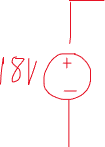 18V
+
−